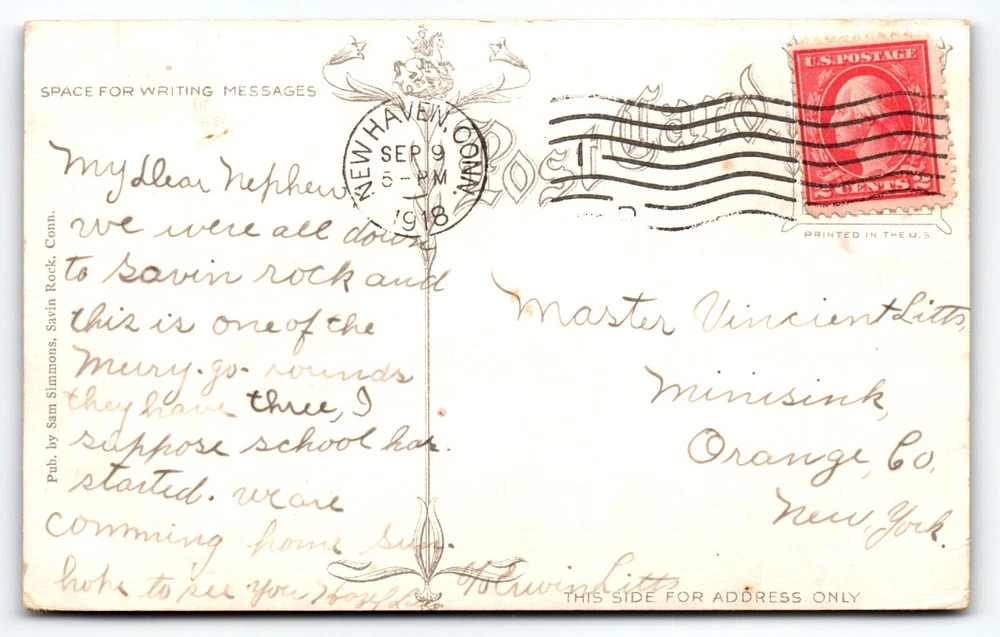 SPACE FOR WRITING MESSAGES
Post Card.
U.S. POSTAGE
2 CENTS 2
PRINTED IN THE U.S.
NEW HAVEN, CONN.
SEP 9
5 - PM
1918
My Dear Nephew
we were all down
to Savin rock and
this is one of the
Merry-go-rounds
they have three, I
suppose school has
started. we are
comming home Sun.
hope to see you Hazel
Master Vincient Litts,
Minisink,
Orange, Co,
New, York.
c/o Erwin Litts
THIS SIDE FOR ADDRESS ONLY
Pub. by Sam Simmons, Savin Rock, Conn.